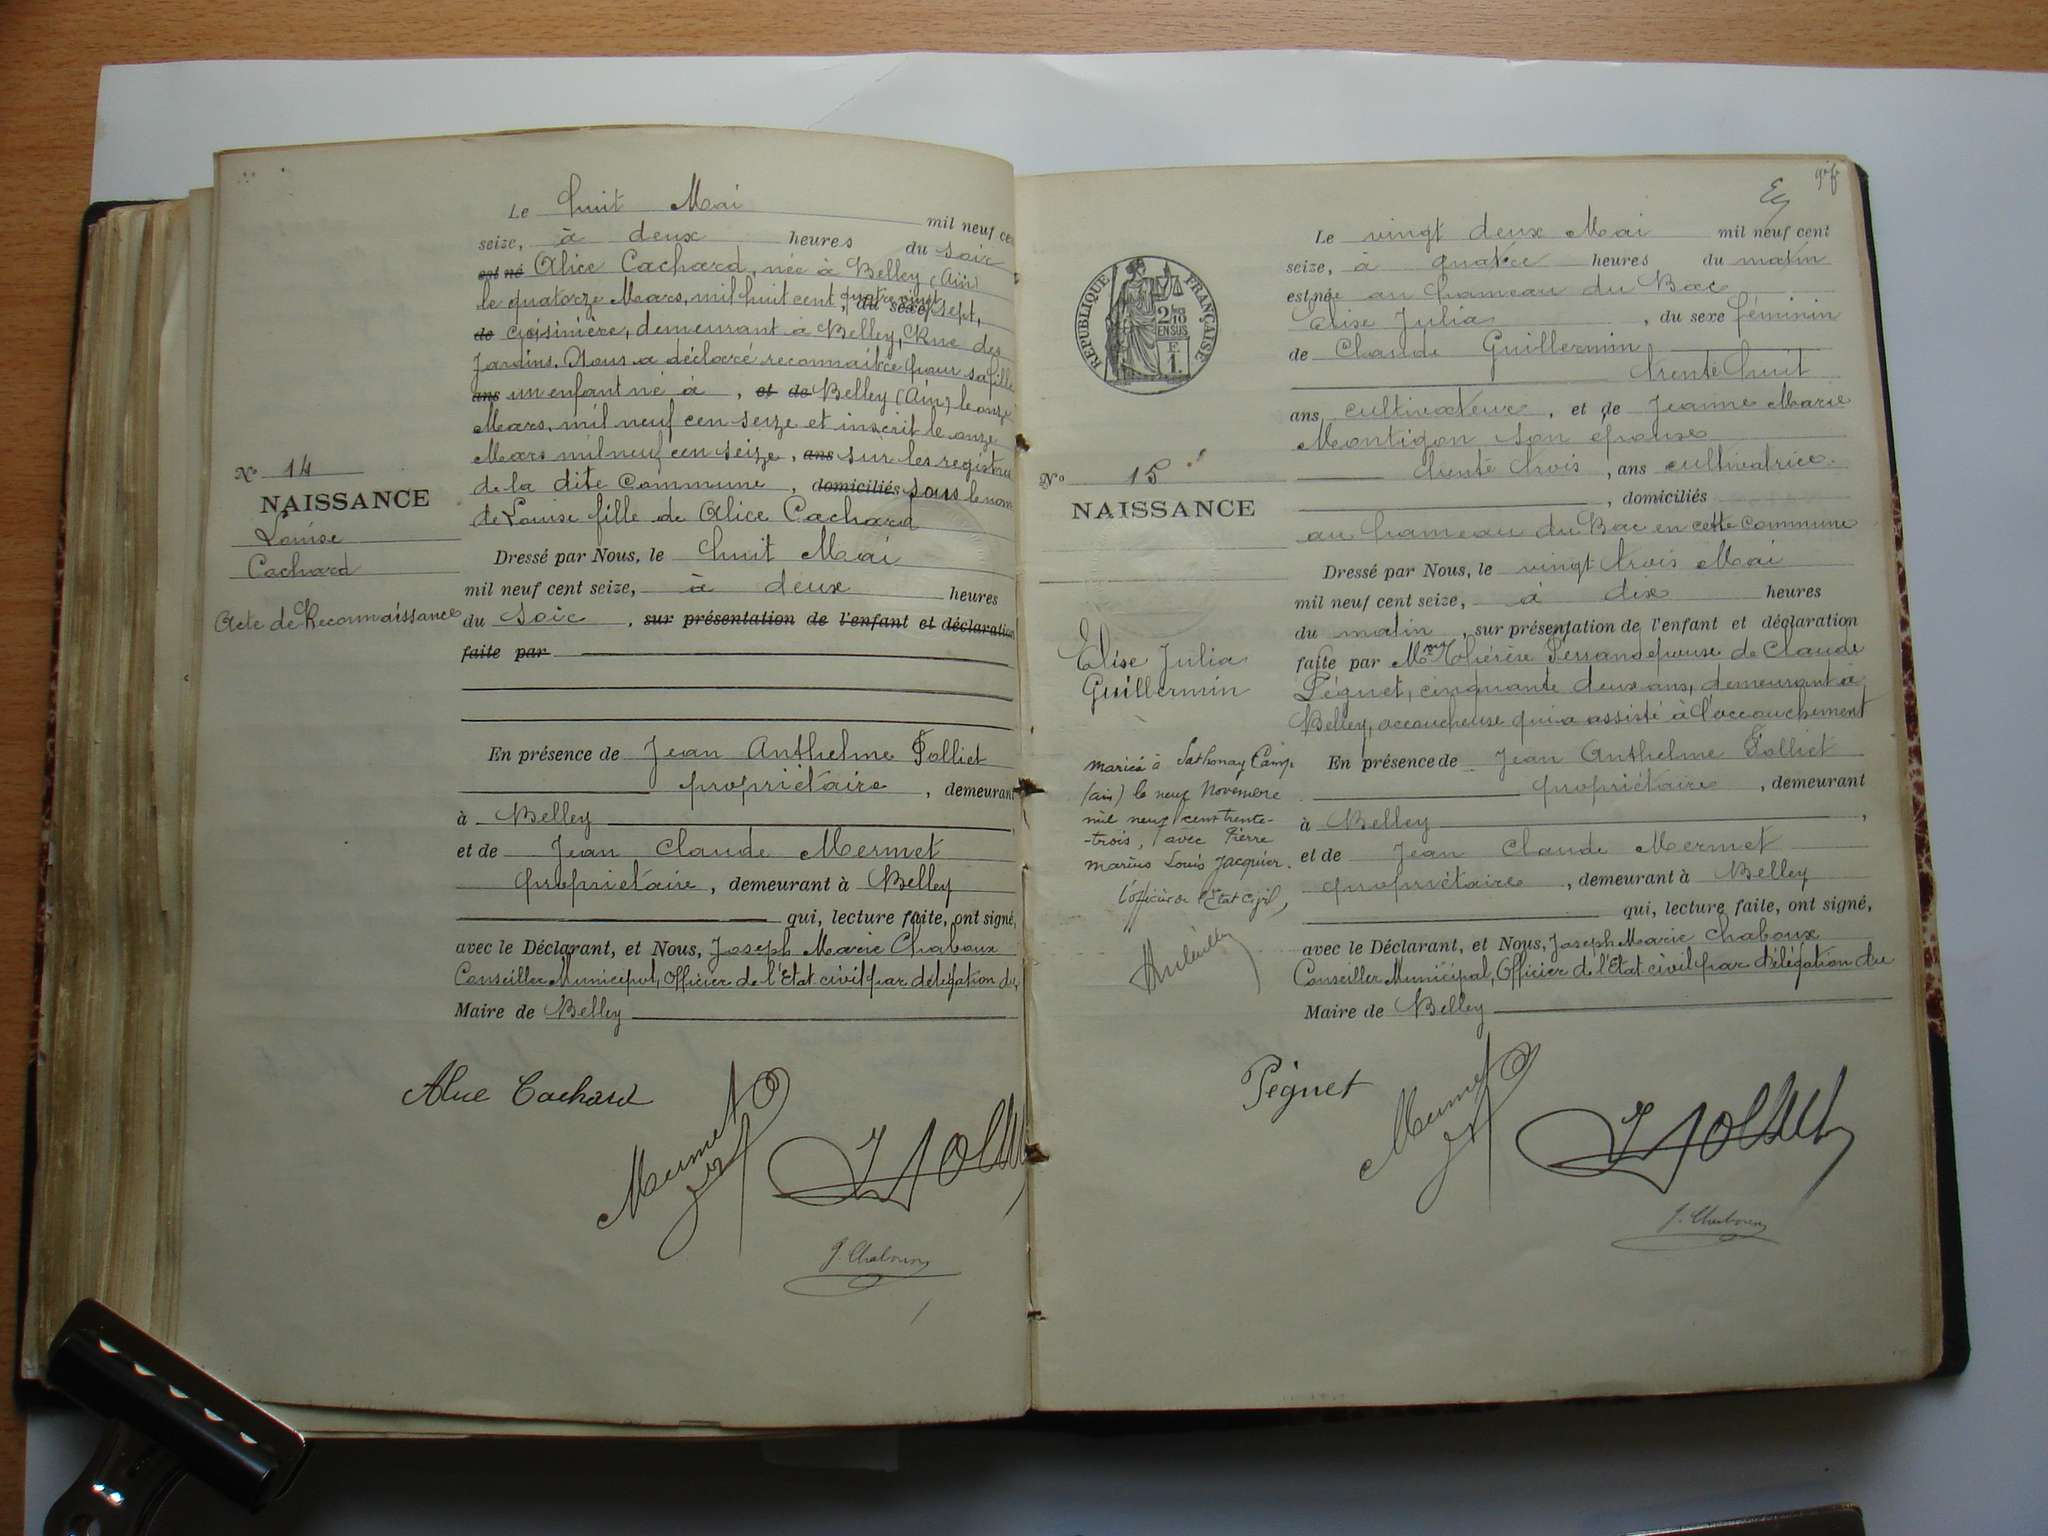 Le huit Mai mil neuf cen
seize, à deux heures du soir
est né Alice Cachard, née à Belley (Ain)
le quatorze Mars, mil huit cent quatre vingt, du sexe sept,
de cuisinière, demeurant à Belley, Rue des
Jardins. Nous a déclaré reconnaitre pour sa fille
ans un enfant né à , et de Belley (Ain) le onze
Mars, mil neuf cen seize et inscrit le onze
Mars mil neuf cen seize, ans sur les registres
de la dite Commune, domiciliés sous le nom
de Louise fille de Alice Cachard
N° 14
NAISSANCE
Louise
Cachard
Acte de Reconnaissance
Dressé par Nous, le huit Mai
mil neuf cent seize, à deux heures
du soir, sur présentation de l'enfant et déclaration
faite par
En présence de Jean Anthelme Folliet
propriétaire, demeurant
à Belley
et de Jean Claude Mermet
propriétaire, demeurant à Belley
qui, lecture faite, ont signé,
avec le Déclarant, et Nous, Joseph Marie Chaboux
Conseiller Municipal, Officier de l'Etat civil par délégation du
Maire de Belley
Alice Cachard
Mermet
J Folliet
J. Chaboux
RÉPUBLIQUE FRANÇAISE
2/10
EN SUS
F.
1.
Le vingt deux Mai mil neuf cent
seize, à quatre heures du matin
est née au hameau du Bac
Elise Julia, du sexe féminin
de Claude Guillermin
trente huit
ans, cultivateur, et de Jeanne Marie
Montigon son épouse
trente trois, ans cultivatrice.
, domiciliés
au hameau du Bac en cette commune
N° 15
NAISSANCE
Elise Julia
Guillermin
mariée à Sathonay Camp
(ain) le neuf Novembre
mil neuf cent trente-
-trois, avec Pierre
Marius Louis Jacquier.
l'officier de l'Etat Civil,
Dressé par Nous, le vingt trois Mai
mil neuf cent seize, à dix heures
du matin, sur présentation de l'enfant et déclaration
faite par Mme Thérèse Perrand épouse de Claude
Péguet, cinquante deux ans, demeurant à
Belley, accoucheuse qui a assisté à l'accouchement
En présence de Jean Anthelme Folliet
propriétaire, demeurant
à Belley,
et de Jean Claude Mermet
propriétaire, demeurant à Belley
qui, lecture faite, ont signé,
avec le Déclarant, et Nous, Joseph Marie Chaboux
Conseiller Municipal, Officier de l'Etat civil par délégation du
Maire de Belley
Péguet
Mermet
J Folliet
J. Chaboux